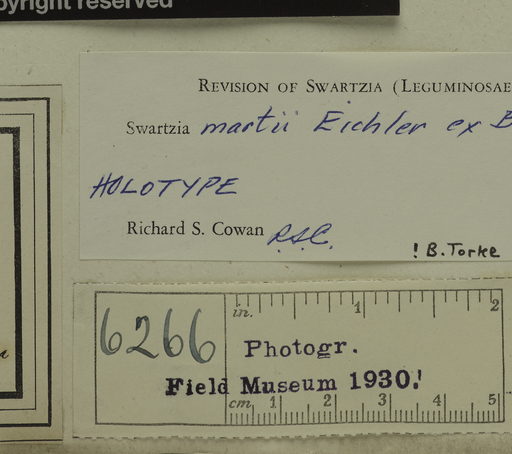 pyright reserved
REVISION OF SWARTZIA (LEGUMINOSAE
Swartzia martii Eichler ex B
HOLOTYPE
Richard S. Cowan R.S.C.
! B. Torke
6266
in. 1 2
Photogr.
Field Museum 1930.
cm. 1 2 3 4 5